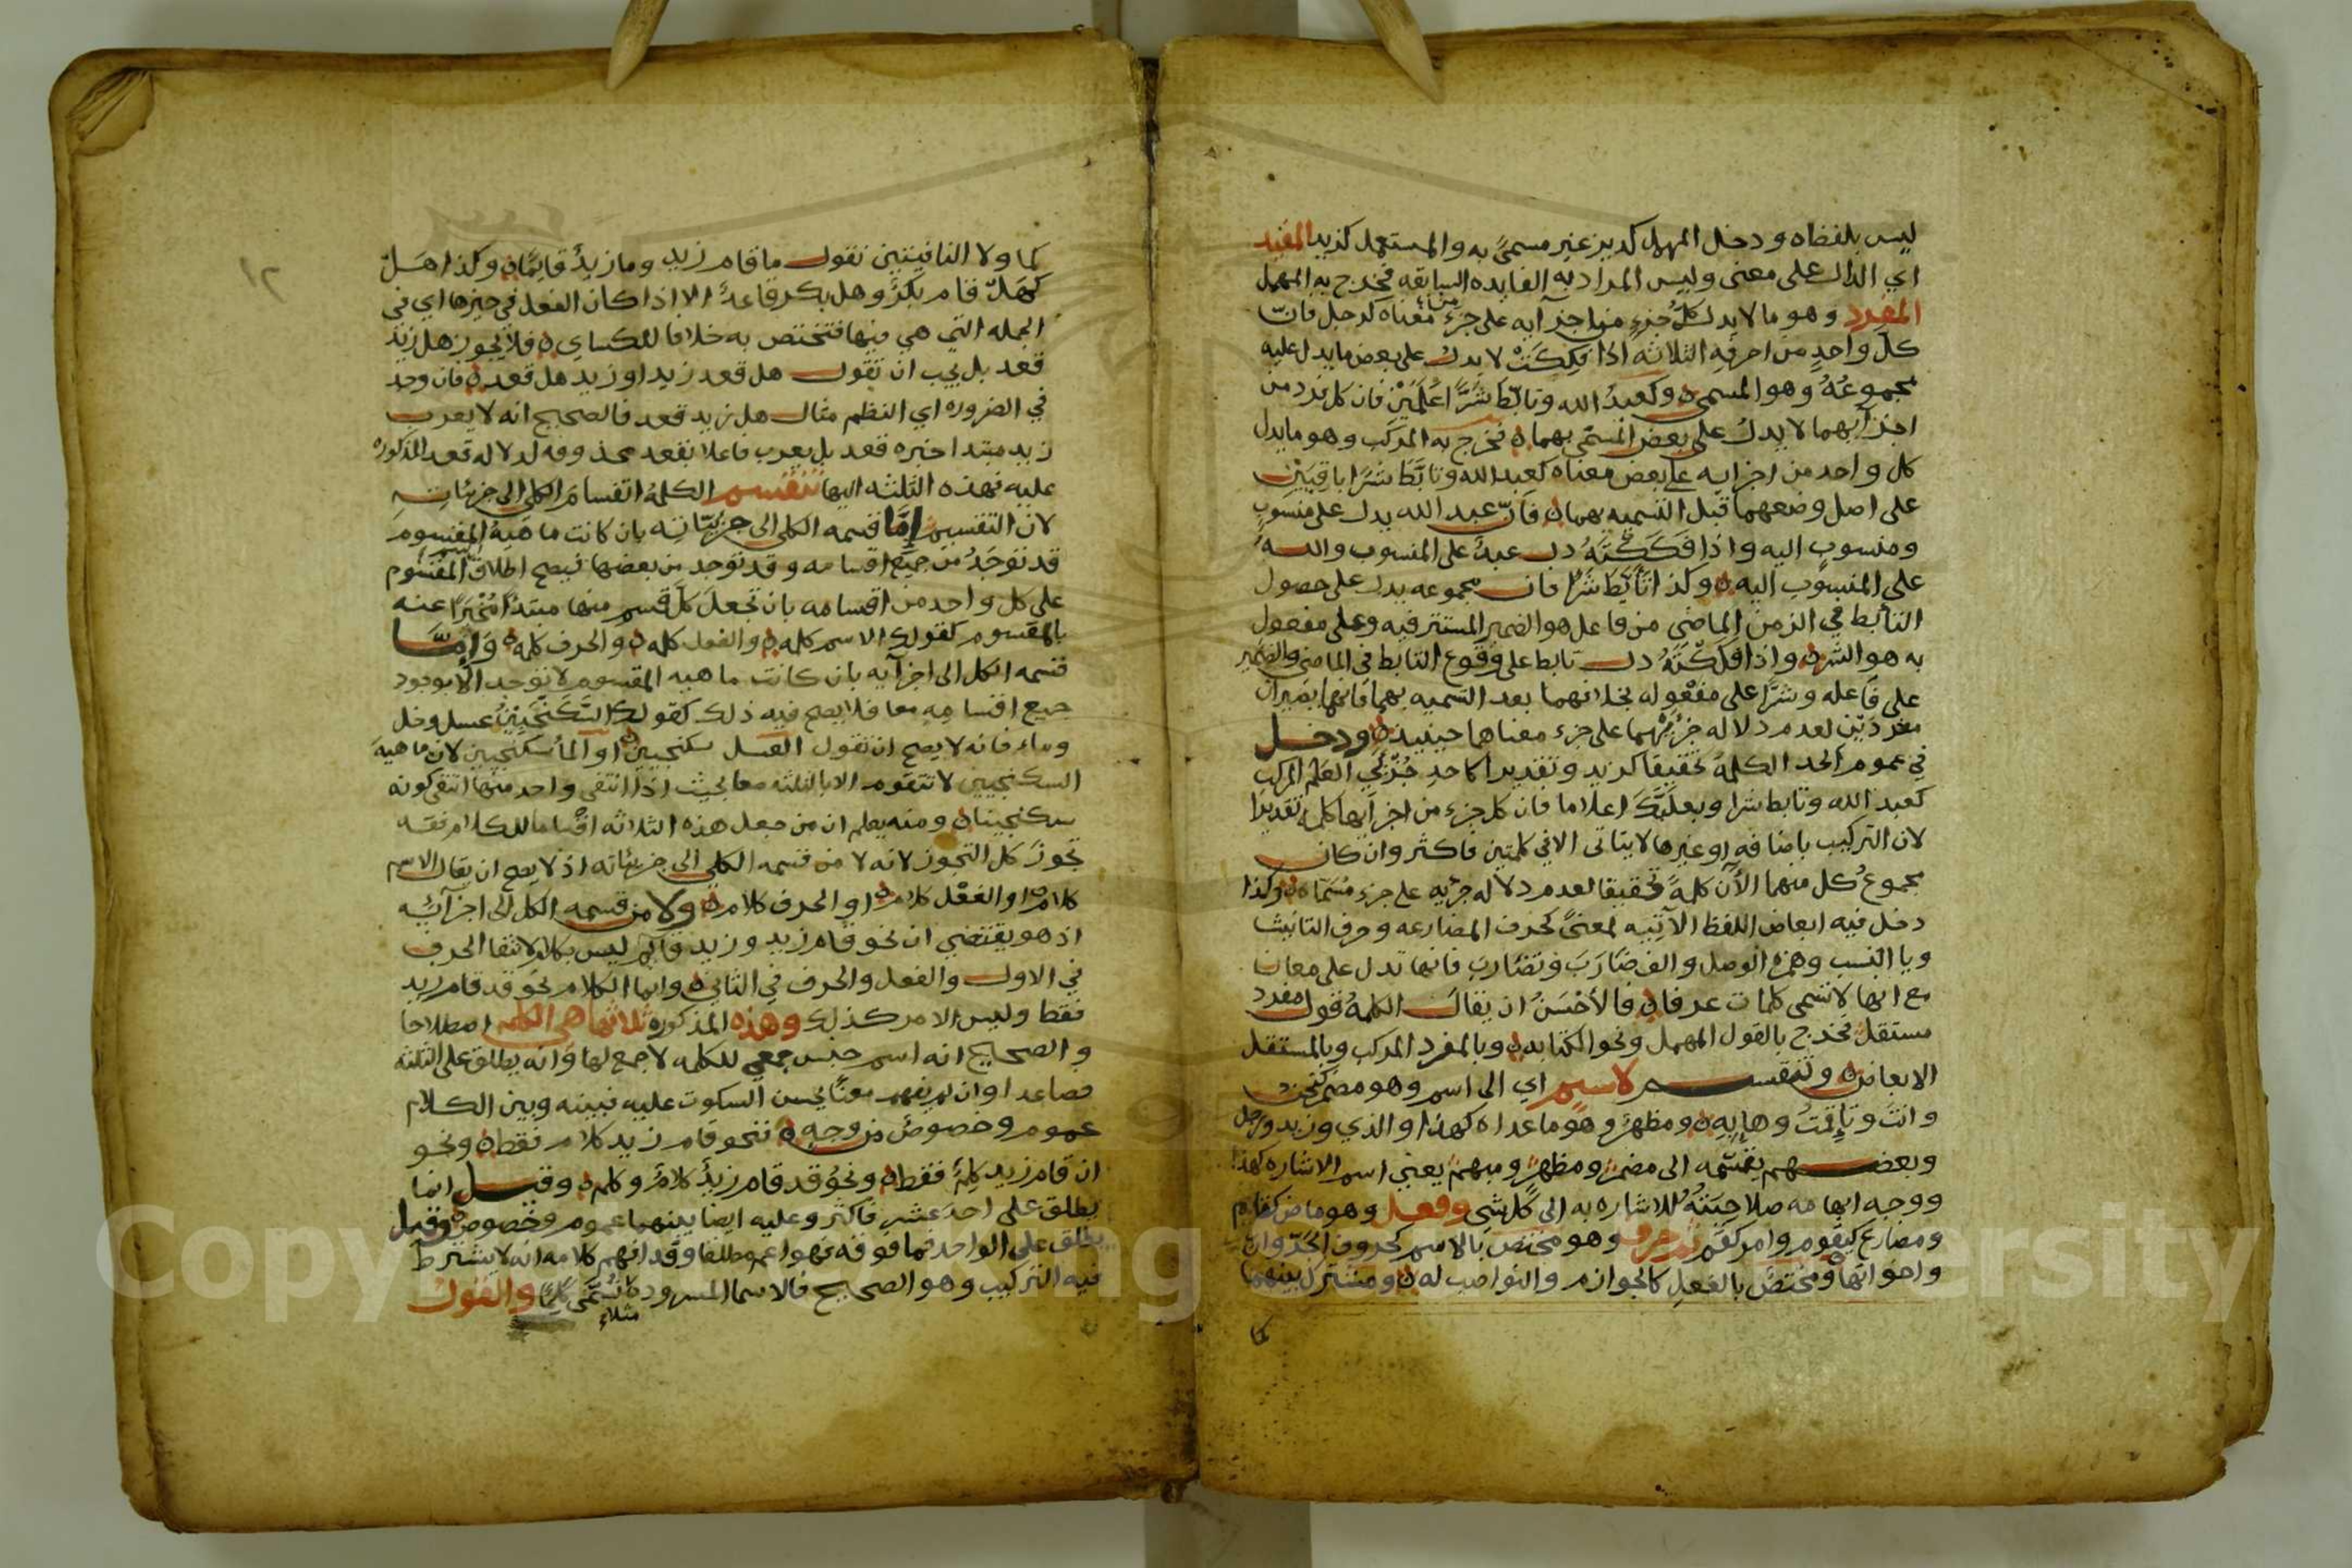 ليس بلفظ ه ودخل المهمل كديز غير مسمىً به والمستعمل كزيد المفيد
اي الدال على معنى وليس المراد به الفايده السابقه فخرج به المهمل
المفرد وهو ما لا يدل كلُّ جزءٍ من اجزآيه على جزءِ معناه كرجل فانّ
كلَّ واحدٍ من احرفِه الثلاثه اذا فككَتْ لا يدل على بعض ما يدل عليه
مجموعُهُ وهو المسمى ه وكعبدُ الله وتابّط شَرًّا عَلَمَيْن فان كل فرد من
اجزآيهما لا يدل على بعض المسمّى بهما ه فخرج به المركب وهو ما يدل
كل واحد من اجزايه على بعض معناه كعبد الله وتابَّط شرًا باقِيَيْن
على اصل وضعهما قبل التسميه بهما ه فانّ عبد الله يدل على منسوبٍ
ومنسوبٍ اليه واذا فككتَهُ دل عبدٌ على المنسوب واللهُ
على المنسوب اليه ه وكذا تأبّط شرًّا فان مجموعه يدل على حصول
التأبط في الزمن الماضي من فاعل هو الضمير المستتر فيه وعلى مفعول
به هو الشر ه واذا فككْتَهُ دل تابط على وقوع التابط في الماضي والضمير
على فاعله وشرًّا على مفعوله بخلافهما بعد التسميه بهما فانهما يصيران
مفردَيْن لعدم دلاله جزئَيْهما على جزء معناهما حينيذ ه ودخل
في عموم الحد الكلمةُ تحقيقا كزيد وتقديرا كاحدِ جُزْئَي العَلَم المركب
كعبد الله وتابط شرا وبعلبكَّ اعلاما فان كل جزء من اجزآيها كلمه تقديرًا
لان التركيب باضافه او غيرها لا يتاتى الا في كلمتين فاكثر وان كان
مجموعُ كل منهما الآن كلمةً تحقيقا لعدم دلاله جزئه على جزء مُسَمّاه ه وكذا
دخل فيه ابعاض اللفظ الآتيه لمعنىً كحرف المضارعه وحرف التانيث
ويا النسب وهمزه الوصل والف ضارَبَ وتضاربَ فانها تدل على معانٍ
مع انها لا تسمى كلمات عرفا ه فالأحْسَنُ ان يقال الكلمةُ قول مفرد
مستقل فخرج بالقول المهمل ونحو الكتابه ه وبالمفرد المركب وبالمستقل
الابعاض ه وتنقسم لاسم اي الى اسم وهو مضمر كنحن
وانت وتا قمتُ وها به ه ومظهرٌ وهو ما عداه كهذا والذي وزيد ورجل
وبعضهم يقسّمه الى مضمرٍ ومظهرٍ ومبهمٍ يعني اسم الاشاره كهذا
ووجه ابهامه صلاحيتهُ للاشاره به الى كل شي وفعل وهو ماض كقام
ومضارع كيقوم وامر كقم ثم حرف وهو مختص بالاسم كحروف الجرّ وانّ
واخواتها ه ومختصٌّ بالفعل كالجوازم والنواصب له ه ومشترك بينهما
كما
١٢
كما ولا النافيتين تقول ما قام زيد وما زيدٌ قايمًا ه وكذا هَلْ
كهَلْ قام بكرٌ وهل بكر قاعدٌ الا اذا كان الفعل في حيزها اي في
الجمله التي هي فيها فتختص به خلافا للكساي ه فلا يجوز هل زيد
قعد بل يجب ان تقول هل قعد زيد او زيد هل قعد ه فان وجد
في الضروره اي النظم مثال هل زيد قعد فالصحيح انه لا يعرب
زيد مبتدا خبره قعد بل يعرب فاعلا بقعد محذوفه لدلاله قعد المذكوره
عليه فهذه الثلثه اليها تنقسم الكلمةُ انقسامَ الكلي الى جزئياتِهِ
لان التقسيم إمّا قسمه الكلي الى جزئيّاتِه بان كانت ماهيةُ المقسوم
قد توجَدُ من جميع اقسامه وقد توجد من بعضها فيصح اطلاق اسم المقسُوم
على كل واحد من اقسامه بان تجعلَ كلَّ قسم منها مبتدأً مُخْبَرًا عنه
بالمقسوم كقولك الاسم كلمه ه والفعل كلمه ه والحرف كلمه ه وَإمّا
قسمه الكل الى اجزآيه بان كانت ماهيه المقسوم لا توجد الا بوجود
جميع اقسامِهِ معا فلا يصح فيه ذلك كقولك السَّكنجَبِيْنُ عسل وخل
وماء فانه لا يصح ان تقول العسل سكنجبين ه او المأُ سكنجبين لان ماهيةَ
السكنجبين لا تتقوم الا بالثلثه معا بحيث اذا انتفى واحد منها انتفى كونه
سكنجبينا ه ومنه يعلم ان من جعل هذه الثلاثه اقساما للكلام نفسه
تجوزَ كل التجوز لانه لا من قسمه الكلي الى جزيئاته اذ لا يصح ان يقال الاسم
كلام ه او الفعْل كلام ه او الحرف كلام ه ولا من قسمه الكل الى اجزآئه
اذ هو يقتضي ان نحو قام زيد وزيد قايم ليس بكلام لانتفا الحرف
في الاول والفعل والحرف في الثاني ه وانما الكلام نحو قد قام زيد
فقط وليس الامر كذلك وهذه المذكوره ثلاثتها هي الكلم اصطلاحا
والصحيح انه اسم جنس جمعي للكلمه لا جمع لها وَانه يطلق على الثلثه
فصاعدا وان لم يفهم معنًا يحسن السكوت عليه فبينه وبين الكلام
عموم وخصوصٌ من وجهٍ ه فنحو قام زيد كلام فقط ه ونحو
ان قام زيد كلِمٌ فقط ه ونحوُ قد قام زيدٌ كلامٌ وكلم ه وقيل انما
يطلق على احدَ عشر فاكثر وعليه ايضا بينهما عموم وخصوص وقيل
يطلق على الواحد فما فوقه فهو اعم مطلقا وقد افهم كلامه انه لا يشترط
فيه التركيب وهو الصحيح فالاسما المسروده مثلا تُسَمّى كَلِمًا والقول